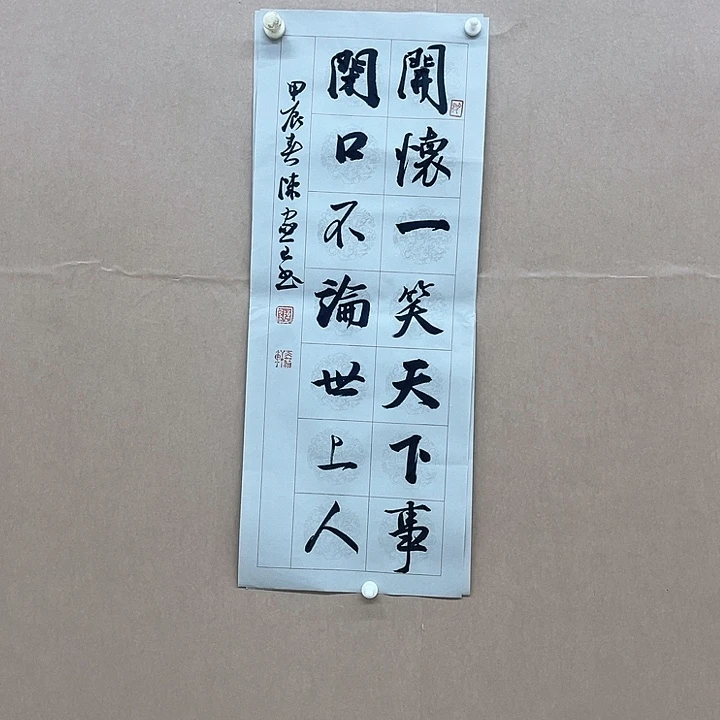 開懷一笑天下事
閑口不論世上人
甲辰春陳
書